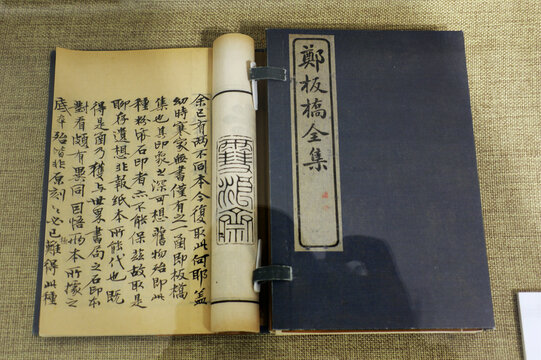 鄭板橋全集
余已有兩不同本今復取此何耶蓋
幼時喪家無書僅有之一函即板橋
集也其印象之深可想舊物殆即此
種粉帋石印者亦不能保茲故取是
聊存遺想非報紙本所能代也既
得是函乃穫与世界書局之石印本
對看頗有異同因悟兩本所據之
底本殆皆非原刻原刻必已難得此種